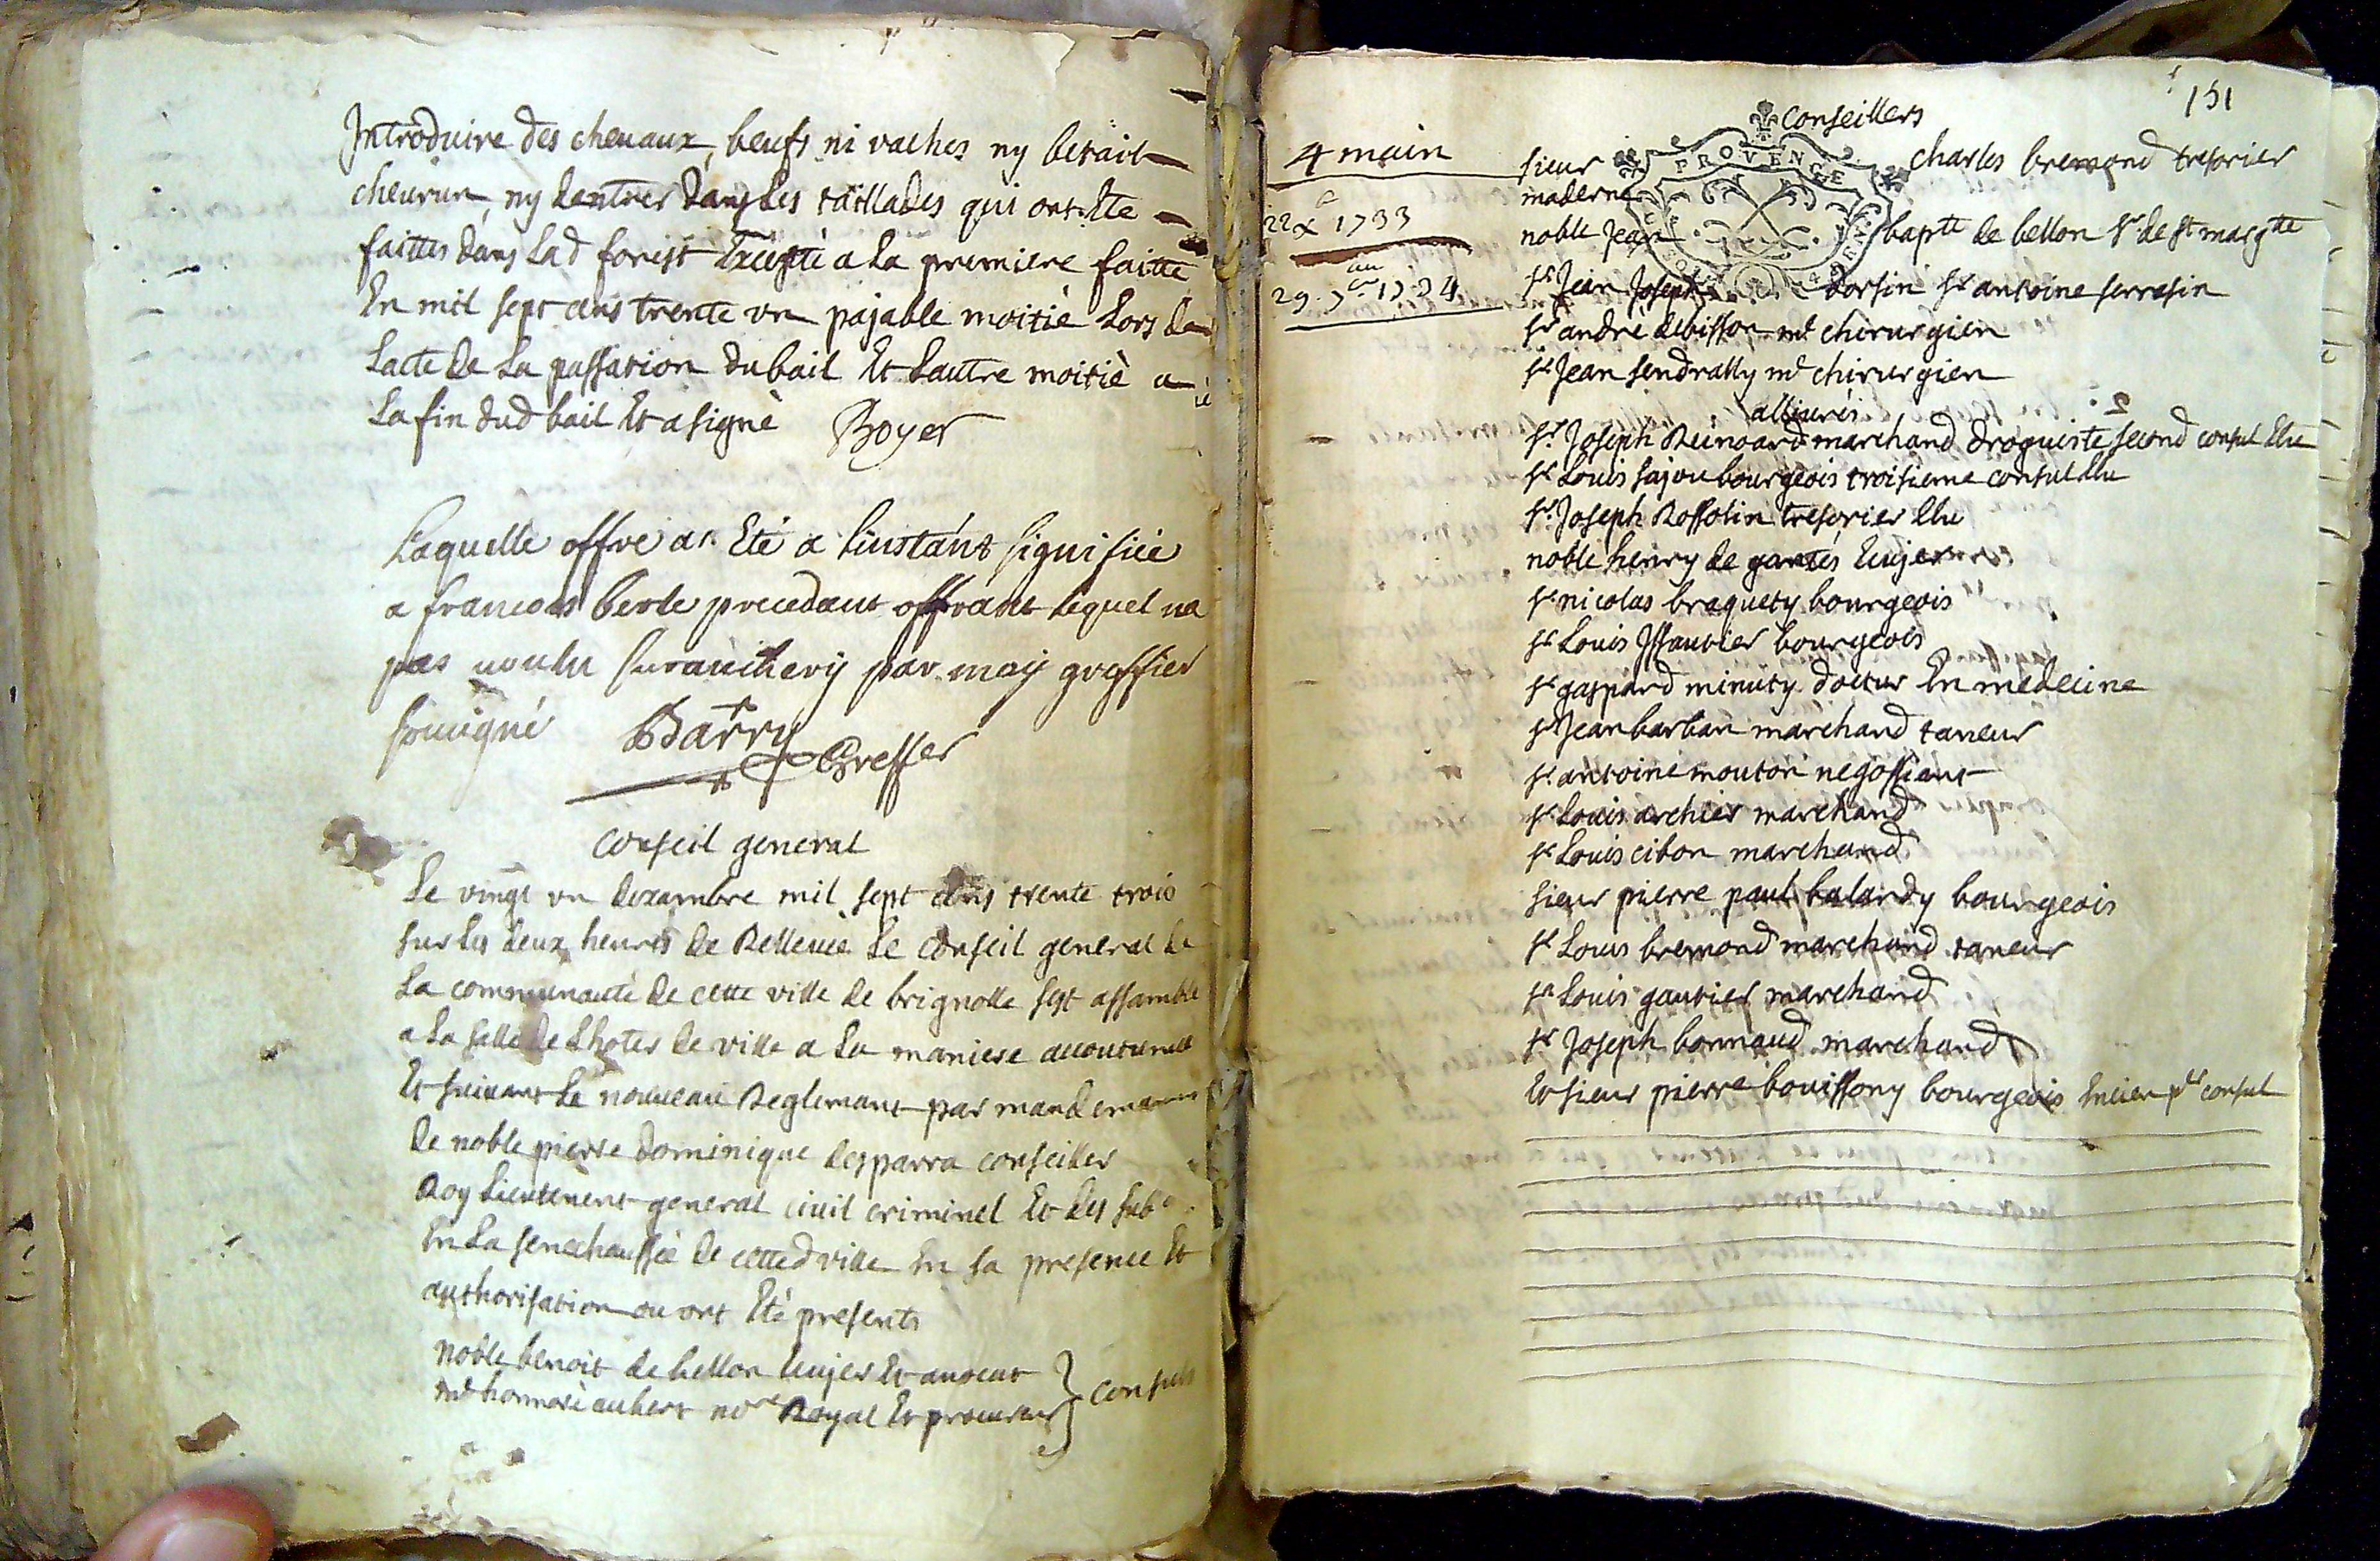 Introduire des cheuaux, beufs ni vaches ny betail
cheurun, ny dentrer dans les taillades qui ont Ete
faittes dans Lad forest Excepté a La premiere faitte
En mil sept cens trente un pajable moitié Lors de
Lacte de La passation du bail Et Lautre moitié a
La fin dud bail Et a signé Boyer
Laquelle offre a Eté a linstant signifiée
a francois berle precedant offrant lequel na
pas uoulu surancherij par moij greffier
sousigné Barry Greffier
conseil general
Le vingt un dezambre mil sept cens trente trois
sur les deux heures de Relleuée Le conseil general de
La communauté de cette ville de brignolle sest assamblé
a La salle de Lhotel de ville a La maniere accoutumee
Et suiuant Le nouueau Reglemant par mandemant
de noble pierre dominique desparra conseiller
Roy Lieutenent general ciuil criminel Et des sub
En La senechaussée de cetted ville En sa presence Et
authorisation ou ont Eté presents
noble benoit de bellon Ecuijer Et auocat
me honnoré aubert nore Royal Et procureur } consuls
151
conseillers
4 main
22 x 1733
au
29 1734
PROVENCE
sieur charles bremond tresorier
moderne
noble jean bapte de bellon sr de st margte
sr Jean Joseph dorsin sr antoine serrasin
sr andre debisson me chirurgien
sr Jean sendrally me chirurgien
alliurés
sr Joseph Reinoard marchand droguiste second consul Elu
sr Louis sajou bourgeois troisieme consul Elu
sr Joseph Rossolin tresorier Elu
noble henry de gantés Ecuijer
sr nicolas braquety bourgeois
sr Louis Jssautier bourgeois
sr gaspard minuty docteur En medecine
sr Jean barban marchand taneur
sr antoine mouton negossiant
sr Louis archier marchand
sr Louis cibon marchand
sieur pierre paul balardy bourgeois
sr Louis bremond marchand taneur
sr Louis gautier marchand
sr Joseph bonnaud marchand
Et sieur pierre bouissony bourgeois Encien pr consul